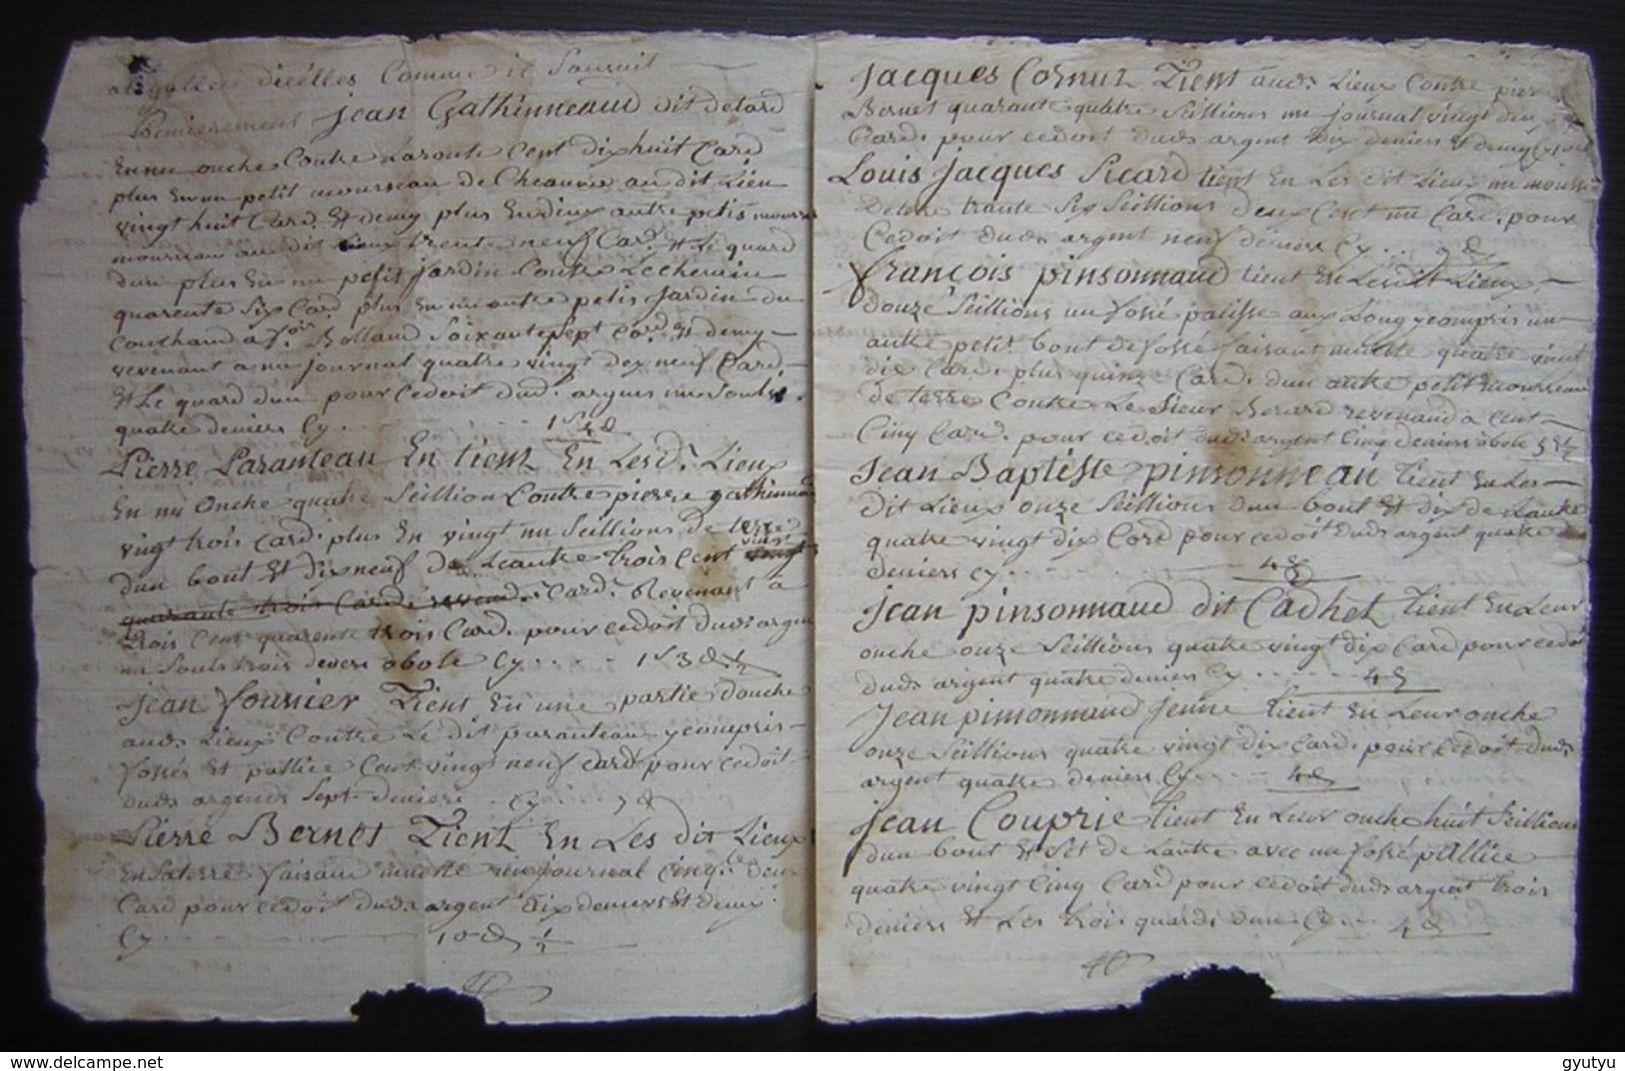 dicelles Comme il Sensuit
Premierement Jean Gathinneaud dit detard
En un ouche Contre Laroute Cent dix huit Card
plus En un petit mourseau de Cheauvie au dit Lieu
vingt huit Card. Et demy plus En deux autre petis
mourseau au dit Lieux trente neuf Card. Et Le quard
dun plus En un petit jardin Contre Lechemin
quarente Six Card plus En un autre petis Jardin du
Couchand a Bolland Soixante Sept Card. Et demy
revenant a un journal quatre vingt dix neuf Card.
Et Le quard dun pour cedoit dud. argens un Soulx
quatre deniers Cy 1 s 4 d
Pierre Paranteau En tient En Lesd. Lieux
En un Ouche quatre Seillion Contre pierre gathinneau
vingt trois Card. plus En vingt un Seillions de terre
dun bout Et dix neuf de Leautre trois Cent vingt
quarante trois Card. revend. Card. Revenant à
trois Cent quarente trois Card. pour cedoit dud. argen
un Souls trois deners obole Cy 1 s 3 d 1/2
Jean fournier Tient En une partie douche
aud. Lieux Contre Le dit paranteau y compris
fossés Et pallice Cent vingt neuf Card pour cedoit
dud. argends Sept deniers Cy 7 d
Pierre Bernet Tient En Les dit Lieux
En Saterre faisant un journal Cinq. deux
Card pour cedoit dud. argent dix deniers Et demi
Cy 10 d 1/2
Jacques Cornut Tient aud. Lieux Contre pierre
Bernet quarante quatre Seillions un journal vingt deu
Card. pour cedoit dud. argent dix deniers Et demy Cy
Louis Jacques Picard tient En Les dit Lieux un mousseau
Deterre trante Six Seillions deux Cent un Card. pour
Cedoit dud. argent neuf deniers Cy 9 d
françois pinsonnaud tient En Lesdit Lieux
douze Seillions un fossé palisse aux Long y compris un
autre petit bout de fossé faisant quatre vint
dix Card. plus quinze Card. dun autre petit mourseau
de terre Contre Le Sieur Berard revenand a Cent
Cinq Card. pour cedoit dud. argent Cinq deniers obole 5 d 1/2
Jean Baptiste pinsonneau tient En Les
dit Lieux onze Seillions dun bout Et dix de Lautre
quatre vingt dix Card pour cedoit dud. argent quatre
deniers Cy 4 d
Jean pinsonnaud dit Cadhet tient En Leur
ouche onze Seillions quatre vingt dix Card pour cedoit
dud. argent quatre deniers Cy 4 d
Jean pinsonnaud jeune tient En Leur ouche
onze Seillions quatre vingt dix Card. pour cedoit dud.
argent quatre deniers Cy 4 d
Jean Couprie tient En Leur ouche huit Seillions
dun bout Et Set de Lautre avec un fossé pallice
quatre vingt Cinq Card pour cedoit dud. argent trois
deniers Et Les trois quards dun Cy 4 d
www.delcampe.net
gyutyu